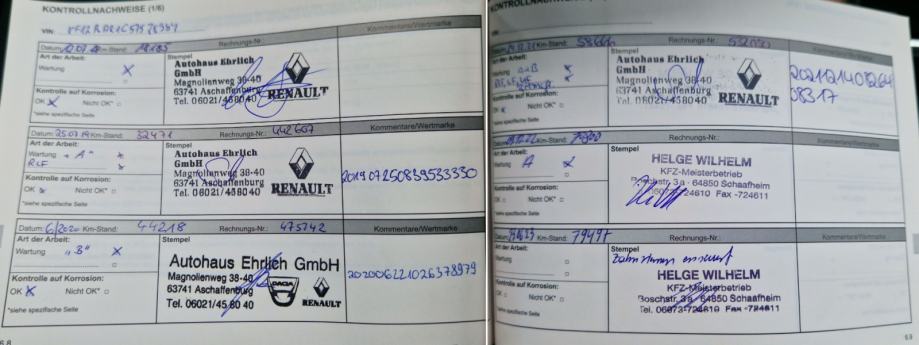 KONTROLLNACHWEISE (1/6)
VIN:
Datum: Km-Stand: Rechnungs-Nr.:
Art der Arbeit:
Wartung x
Kontrolle auf Korrosion:
OK x Nicht OK*
*siehe spezifische Seite
Stempel
Autohaus Ehrlich
GmbH
Magnolienweg 38-40
63741 Aschaffenburg
Tel. 06021/458040
RENAULT
Kommentare/Wertmarke
Datum: 25.07.19 Km-Stand: 32471 Rechnungs-Nr.: 442607
Art der Arbeit:
Wartung "A" x
Kontrolle auf Korrosion:
OK x Nicht OK*
*siehe spezifische Seite
Stempel
Autohaus Ehrlich
GmbH
Magnolienweg 38-40
63741 Aschaffenburg
Tel. 06021/458040
RENAULT
Kommentare/Wertmarke
20190725083953330
Datum: 6/2020 Km-Stand: 44218 Rechnungs-Nr.: 475742
Art der Arbeit:
Wartung "B" x
Kontrolle auf Korrosion:
OK x Nicht OK*
*siehe spezifische Seite
Stempel
Autohaus Ehrlich GmbH
Magnolienweg 38-40
63741 Aschaffenburg
Tel. 06021/45 80 40
DACIA
RENAULT
Kommentare/Wertmarke
20200622102637 8979
6.8
KONTROLLNACHWEISE
VIN:
Km-Stand: Rechnungs-Nr.:
Art der Arbeit:
Wartung A+B x
Kontrolle auf Korrosion:
OK Nicht OK*
*siehe spezifische Seite
Stempel
Autohaus Ehrlich
GmbH
Magnolienweg 38-40
63741 Aschaffenburg
Tel. 06021/458040
RENAULT
Kommentare/Wertmarke
08317
Km-Stand: Rechnungs-Nr.:
Art der Arbeit:
Wartung A x
Kontrolle auf Korrosion:
OK Nicht OK*
*siehe spezifische Seite
Stempel
HELGE WILHELM
KFZ-Meisterbetrieb
Boschstr. 3a · 64850 Schaafheim
Fax -724611
Kommentare/Wertmarke
Km-Stand: Rechnungs-Nr.:
Art der Arbeit:
Wartung
Kontrolle auf Korrosion:
OK Nicht OK*
*siehe spezifische Seite
Stempel
Zahnriemen erneuert
HELGE WILHELM
KFZ-Meisterbetrieb
Boschstr. 3a · 64850 Schaafheim
Tel. 06073-724610 Fax -724611
Kommentare/Wertmarke
6.9